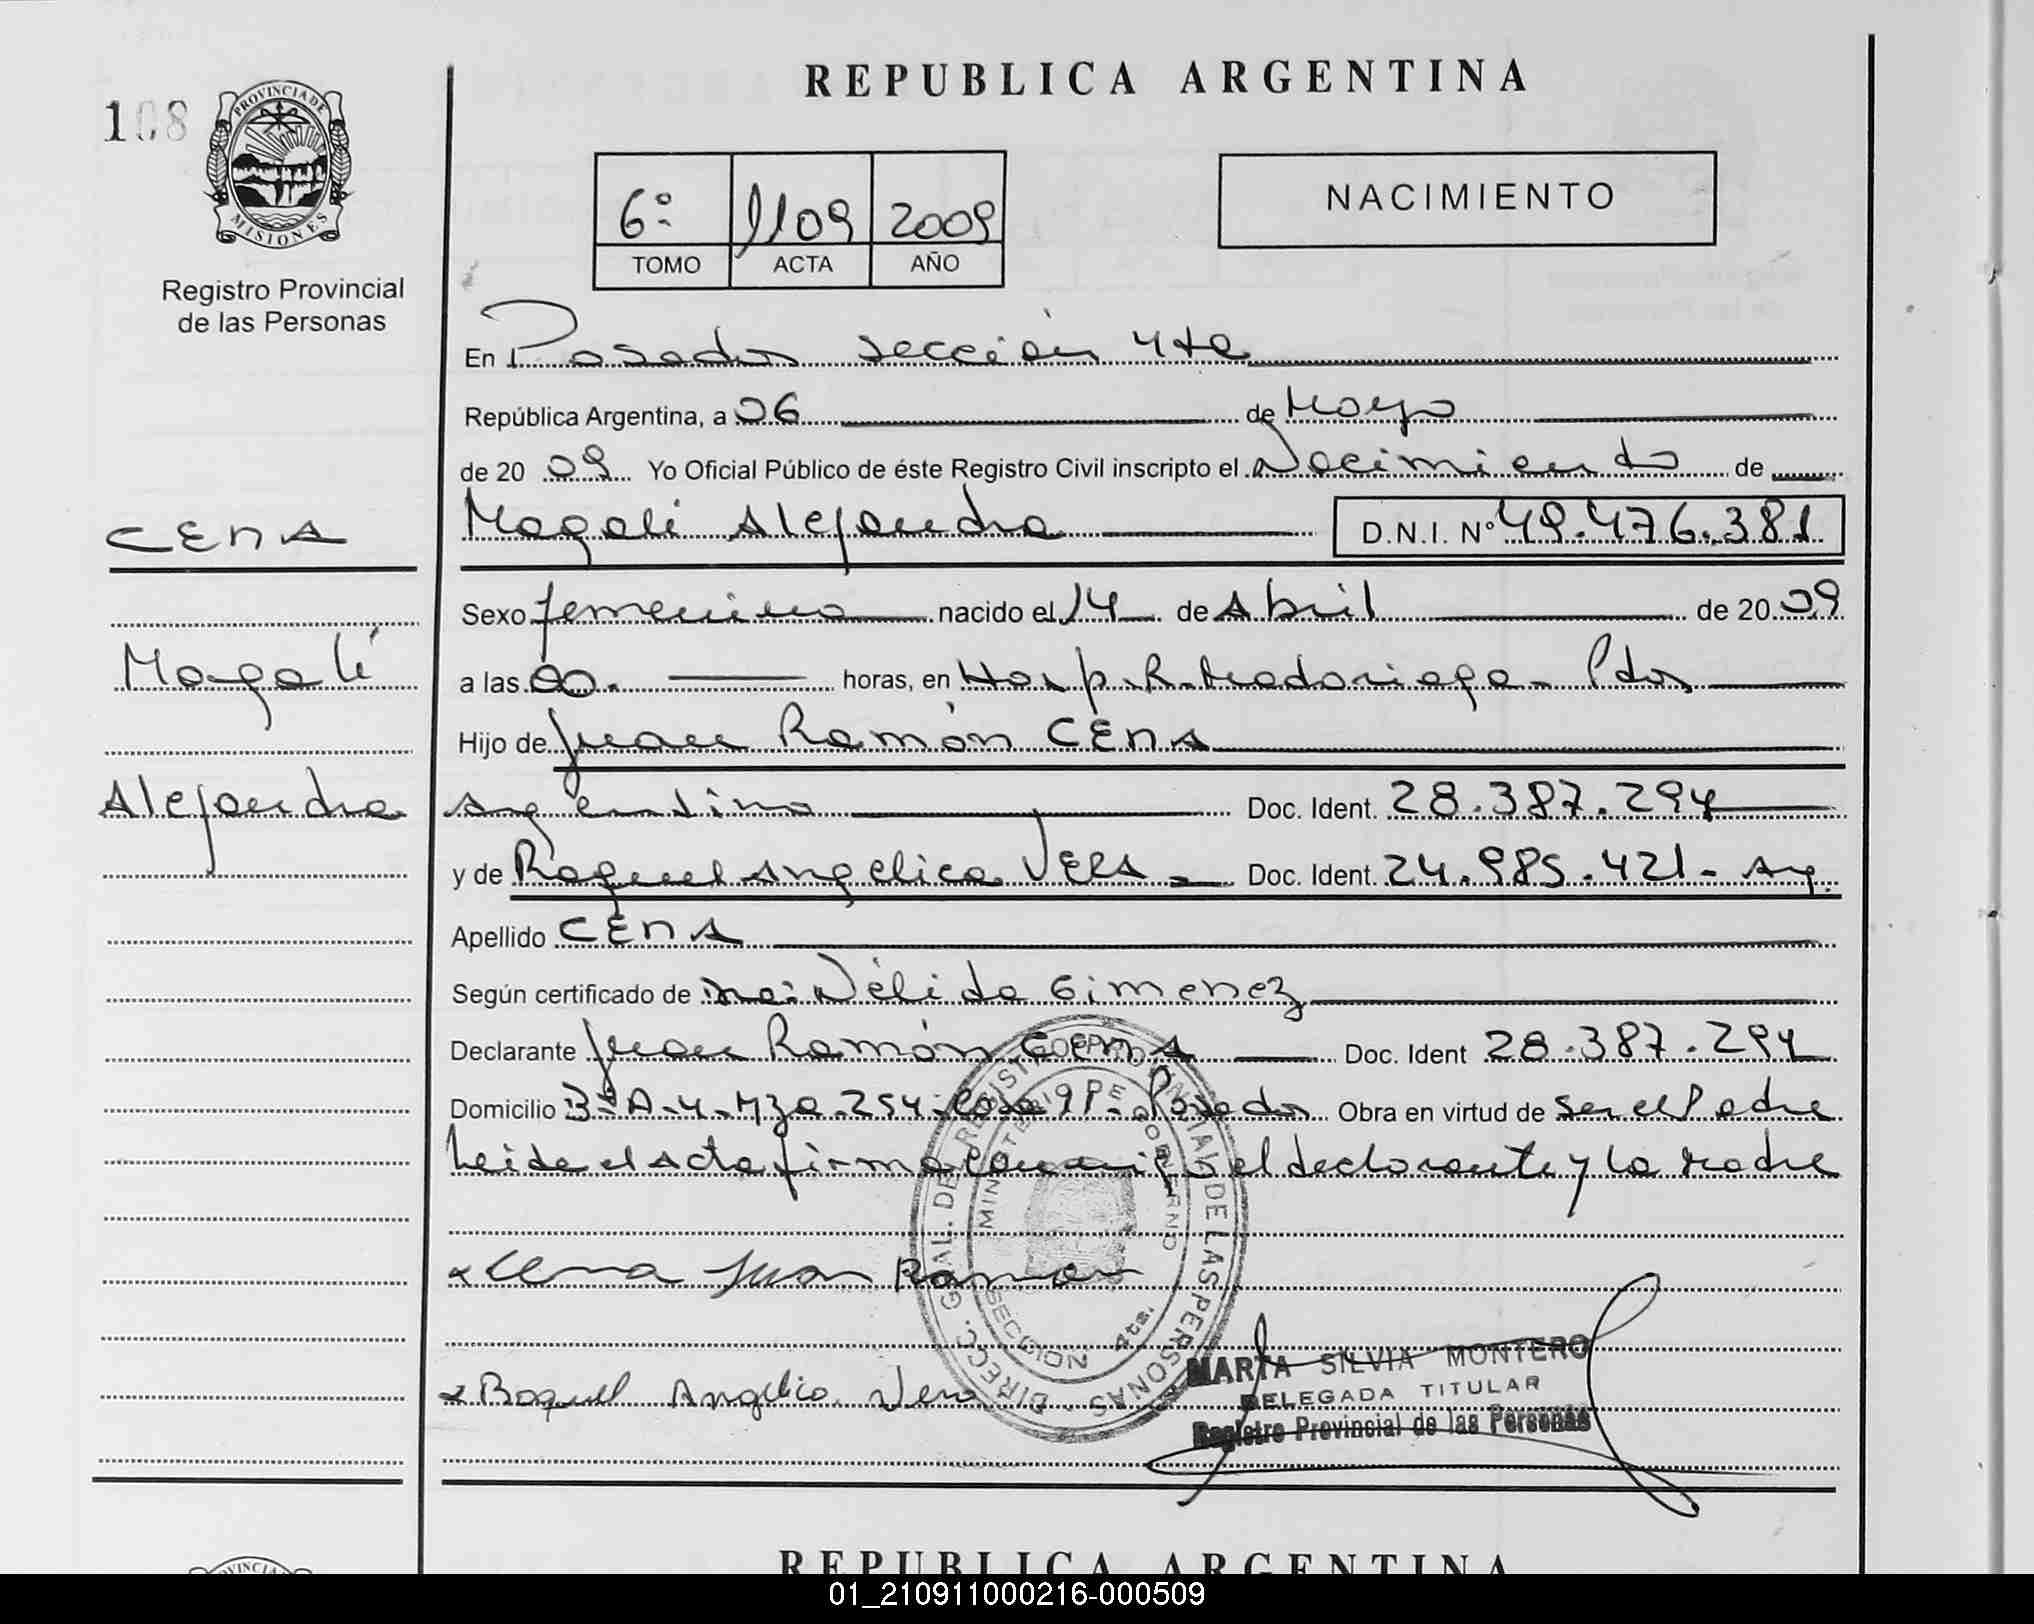 REPUBLICA ARGENTINA
108
PROVINCIA DE
MISIONES
Registro Provincial
de las Personas
6º 1109 2009
TOMO ACTA AÑO
NACIMIENTO
En Posadas sección 4ta
República Argentina, a 06 de Mayo
de 20 09 Yo Oficial Público de éste Registro Civil inscripto el Nacimiento de
Magali Alejandra D.N.I. Nº 49.476.381
CENA
Magali
Alejandra
Sexo femenino nacido el 14 de Abril de 20 09
a las 00. horas, en Hosp. R. Madariaga - Pdas
Hijo de Juan Ramón CENA
Argentino Doc. Ident. 28.387.294
y de Raquel Angelica VERA - Doc. Ident. 24.985.421 - Arg.
Apellido CENA
Según certificado de Nélida Gimenez
Declarante Juan Ramón CENA Doc. Ident 28.387.294
Domicilio Bº A-4-Mza.254-Casa 9 Posadas Obra en virtud de ser el Padre
Leida el Acta firma conmigo el declarante y la Madre
Cena Juan Ramon
Raquel Angelica Vera
DIRECC. GRAL. DE REGISTRO PROVINCIAL DE LAS PERSONAS
MINISTERIO DE GOBIERNO
SECCION 4ta.
MARTA SILVIA MONTERO
DELEGADA TITULAR
Registro Provincial de las Personas
REPUBLICA ARGENTINA
01_210911000216-000509